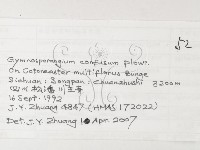 52
Gymnosporangium confusum Plowr.
On Cotoneaster multiflorus Bunge
Sichuan: Songpan: Chuanzhusi 3200m
16 Sept. 1992
J.Y. Zhuang 4847 (HMAS 172022)
Det. J.Y. Zhuang 10 Apr. 2007